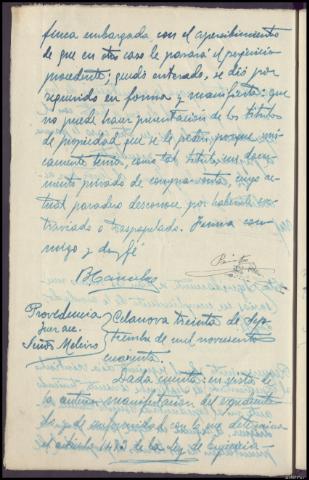 finca embargada con el apercibimiento
de que en otro caso le parará el perjuicio
procedente; quedó enterado, se dió por
requerido en forma y manifiesta: que
no puede hacer presentación de los títulos
de propiedad que se le piden porque úni-
camente tenía como tal título un docu-
mento privado de compra-venta, cuyo ac-
tual paradero desconoce por habérsele ex-
traviado o traspapelado. Firma con-
migo y doy fé
Providencia
Juez ac.
Señor Meleiro
Celanova treinta de Sep-
tiembre de mil novecientos
cuarenta.
Dada cuenta: en vista de
la anterior manifestación del
y de conformidad con lo que determina
el artículo 1493 de la Ley de Enjuicia-